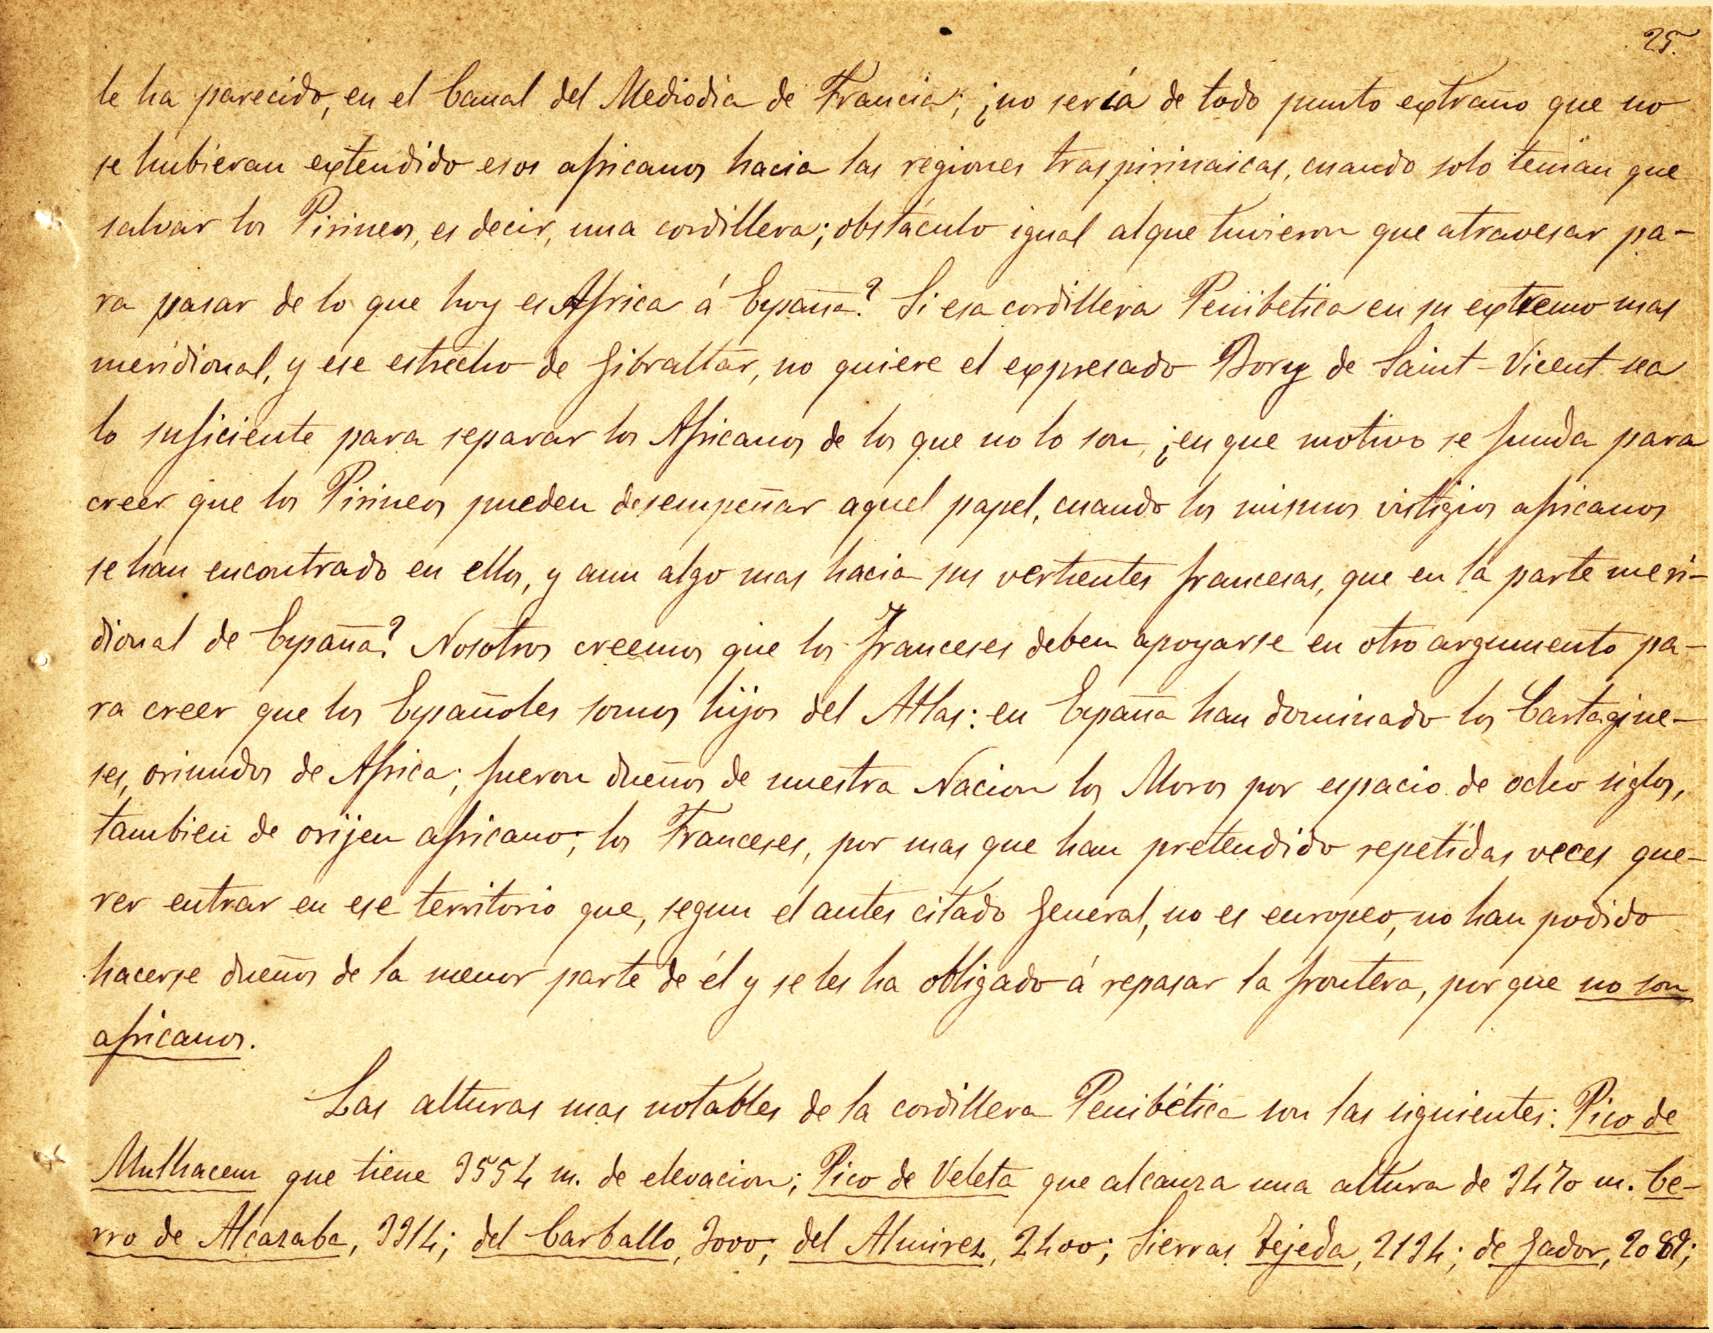 25.
le ha parecido, en el Canal del Mediodia de Francia; ¿no sería de todo punto extraño que no
se hubieran extendido esos africanos hacia las regiones traspirinaicas, cuando solo tenian que
salvar los Pirineos, es decir, una cordillera; obstáculo igual al que tuvieron que atravesar pa-
ra pasar de lo que hoy es Africa á España? Si esa cordillera Penibetica en su extremo mas
meridional, y ese estrecho de Gibraltar, no quiere el expresado Bory de Saint-Vicent sea
lo suficiente para separar los Africanos de los que no lo son, ¿en que motivo se funda para
creer que los Pirineos pueden desempeñar aquel papel, cuando los mismos vistigios africanos
se han encontrado en ellos, y aun algo mas hacia sus vertientes francesas, que en la parte meri-
dional de España? Nosotros creemos que los franceses deben apoyarse en otro argumento pa-
ra creer que los Españoles somos hijos del Atlas: en España han dominado los Cartagine-
ses, oriundos de Africa; fueron dueños de nuestra Nacion los Moros por espacio de ocho siglos,
tambien de orijen africano; los Franceses, por mas que han pretendido repetidas veces que-
rer entrar en ese territorio que, segun el antes citado General, no es europeo, no han podido
hacerse dueños de la menor parte de él y se les ha obligado á repasar la frontera, porque no son
africanos.
Las alturas mas notables de la cordillera Penibética son las siguientes: Pico de
Mulhacem que tiene 3554 m. de elevacion; Pico de Veleta que alcanza una altura de 3470 m. Ce-
rro de Alcazaba, 3314; del Carballo, 3000; del Almirez, 2400; Sierras Tejeda, 2134; de Gador,